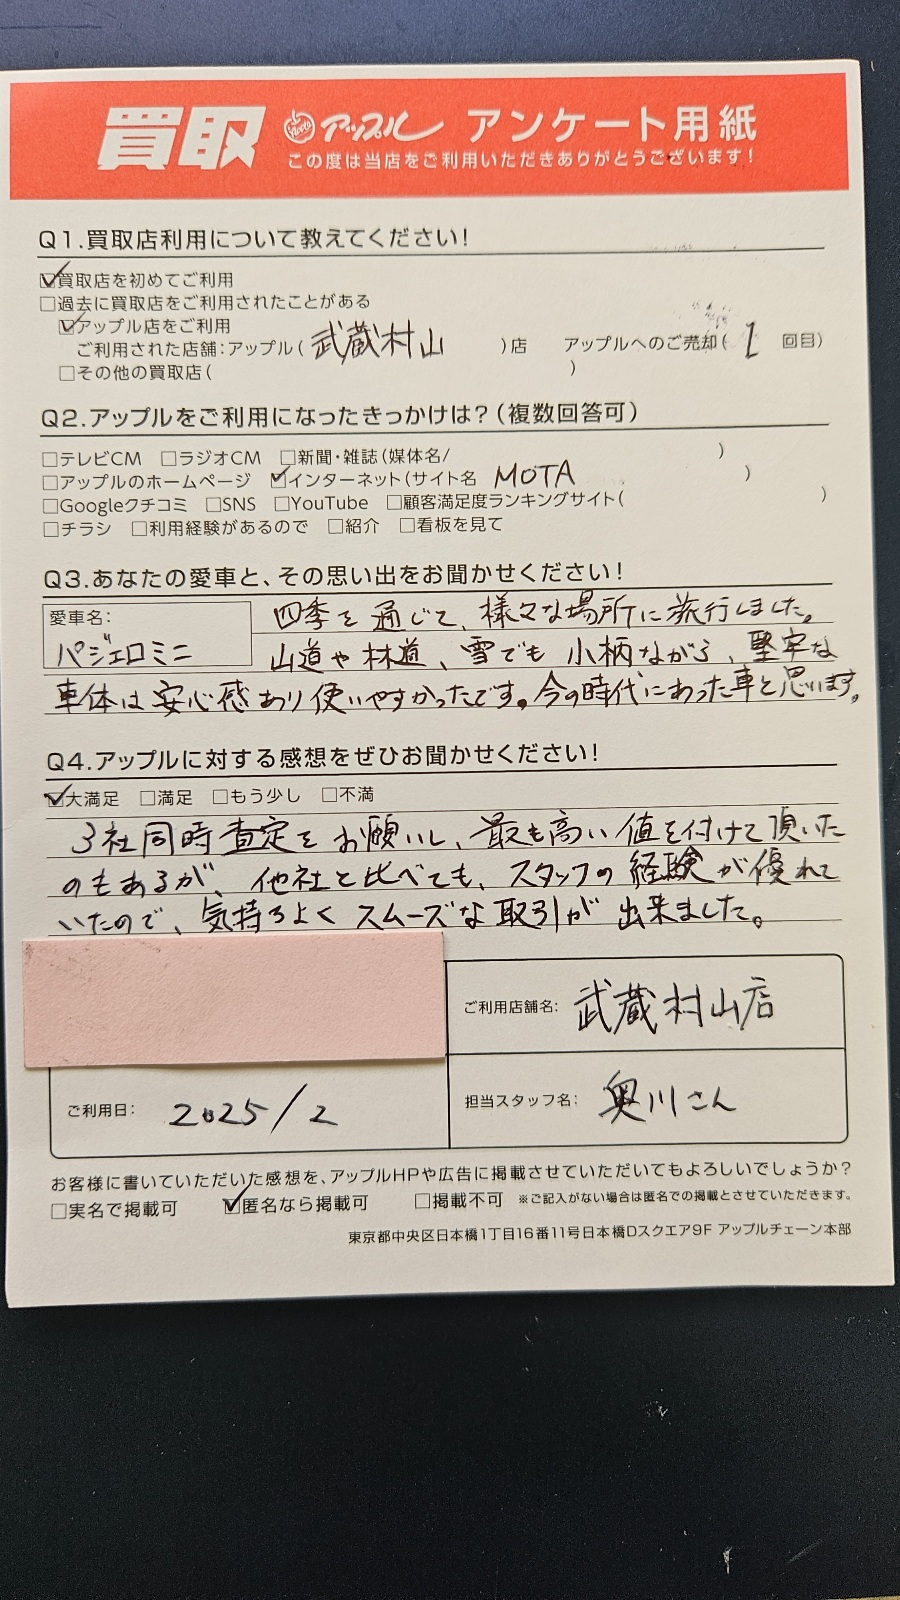 買取 アップル アンケート用紙
この度は当店をご利用いただきありがとうございます!
Q1.買取店利用について教えてください!
☑買取店を初めてご利用
□過去に買取店をご利用されたことがある
☑アップル店をご利用
ご利用された店舗:アップル(武蔵村山)店 アップルへのご売却(1回目)
□その他の買取店( )
Q2.アップルをご利用になったきっかけは?(複数回答可)
□テレビCM □ラジオCM □新聞・雑誌(媒体名/ )
□アップルのホームページ ☑インターネット(サイト名 MOTA )
□Googleクチコミ □SNS □YouTube □顧客満足度ランキングサイト( )
□チラシ □利用経験があるので □紹介 □看板を見て
Q3.あなたの愛車と、その思い出をお聞かせください!
愛車名:
パジェロミニ
四季を通じて、様々な場所に旅行しました。
山道や林道、雪でも小柄ながら、堅牢な
車体は安心感あり使いやすかったです。今の時代にあった車と思います。
Q4.アップルに対する感想をぜひお聞かせください!
☑大満足 □満足 □もう少し □不満
3社同時査定をお願いし、最も高い値を付けて頂いた
のもあるが、他社と比べても、スタッフの経験が優れて
いたので、気持ちよくスムーズな取引が出来ました。
ご利用店舗名: 武蔵村山店
ご利用日: 2025/2
担当スタッフ名: 奥川さん
お客様に書いていただいた感想を、アップルHPや広告に掲載させていただいてもよろしいでしょうか?
□実名で掲載可 ☑匿名なら掲載可 □掲載不可 ※ご記入がない場合は匿名での掲載とさせていただきます。
東京都中央区日本橋1丁目16番11号日本橋Dスクエア9F アップルチェーン本部